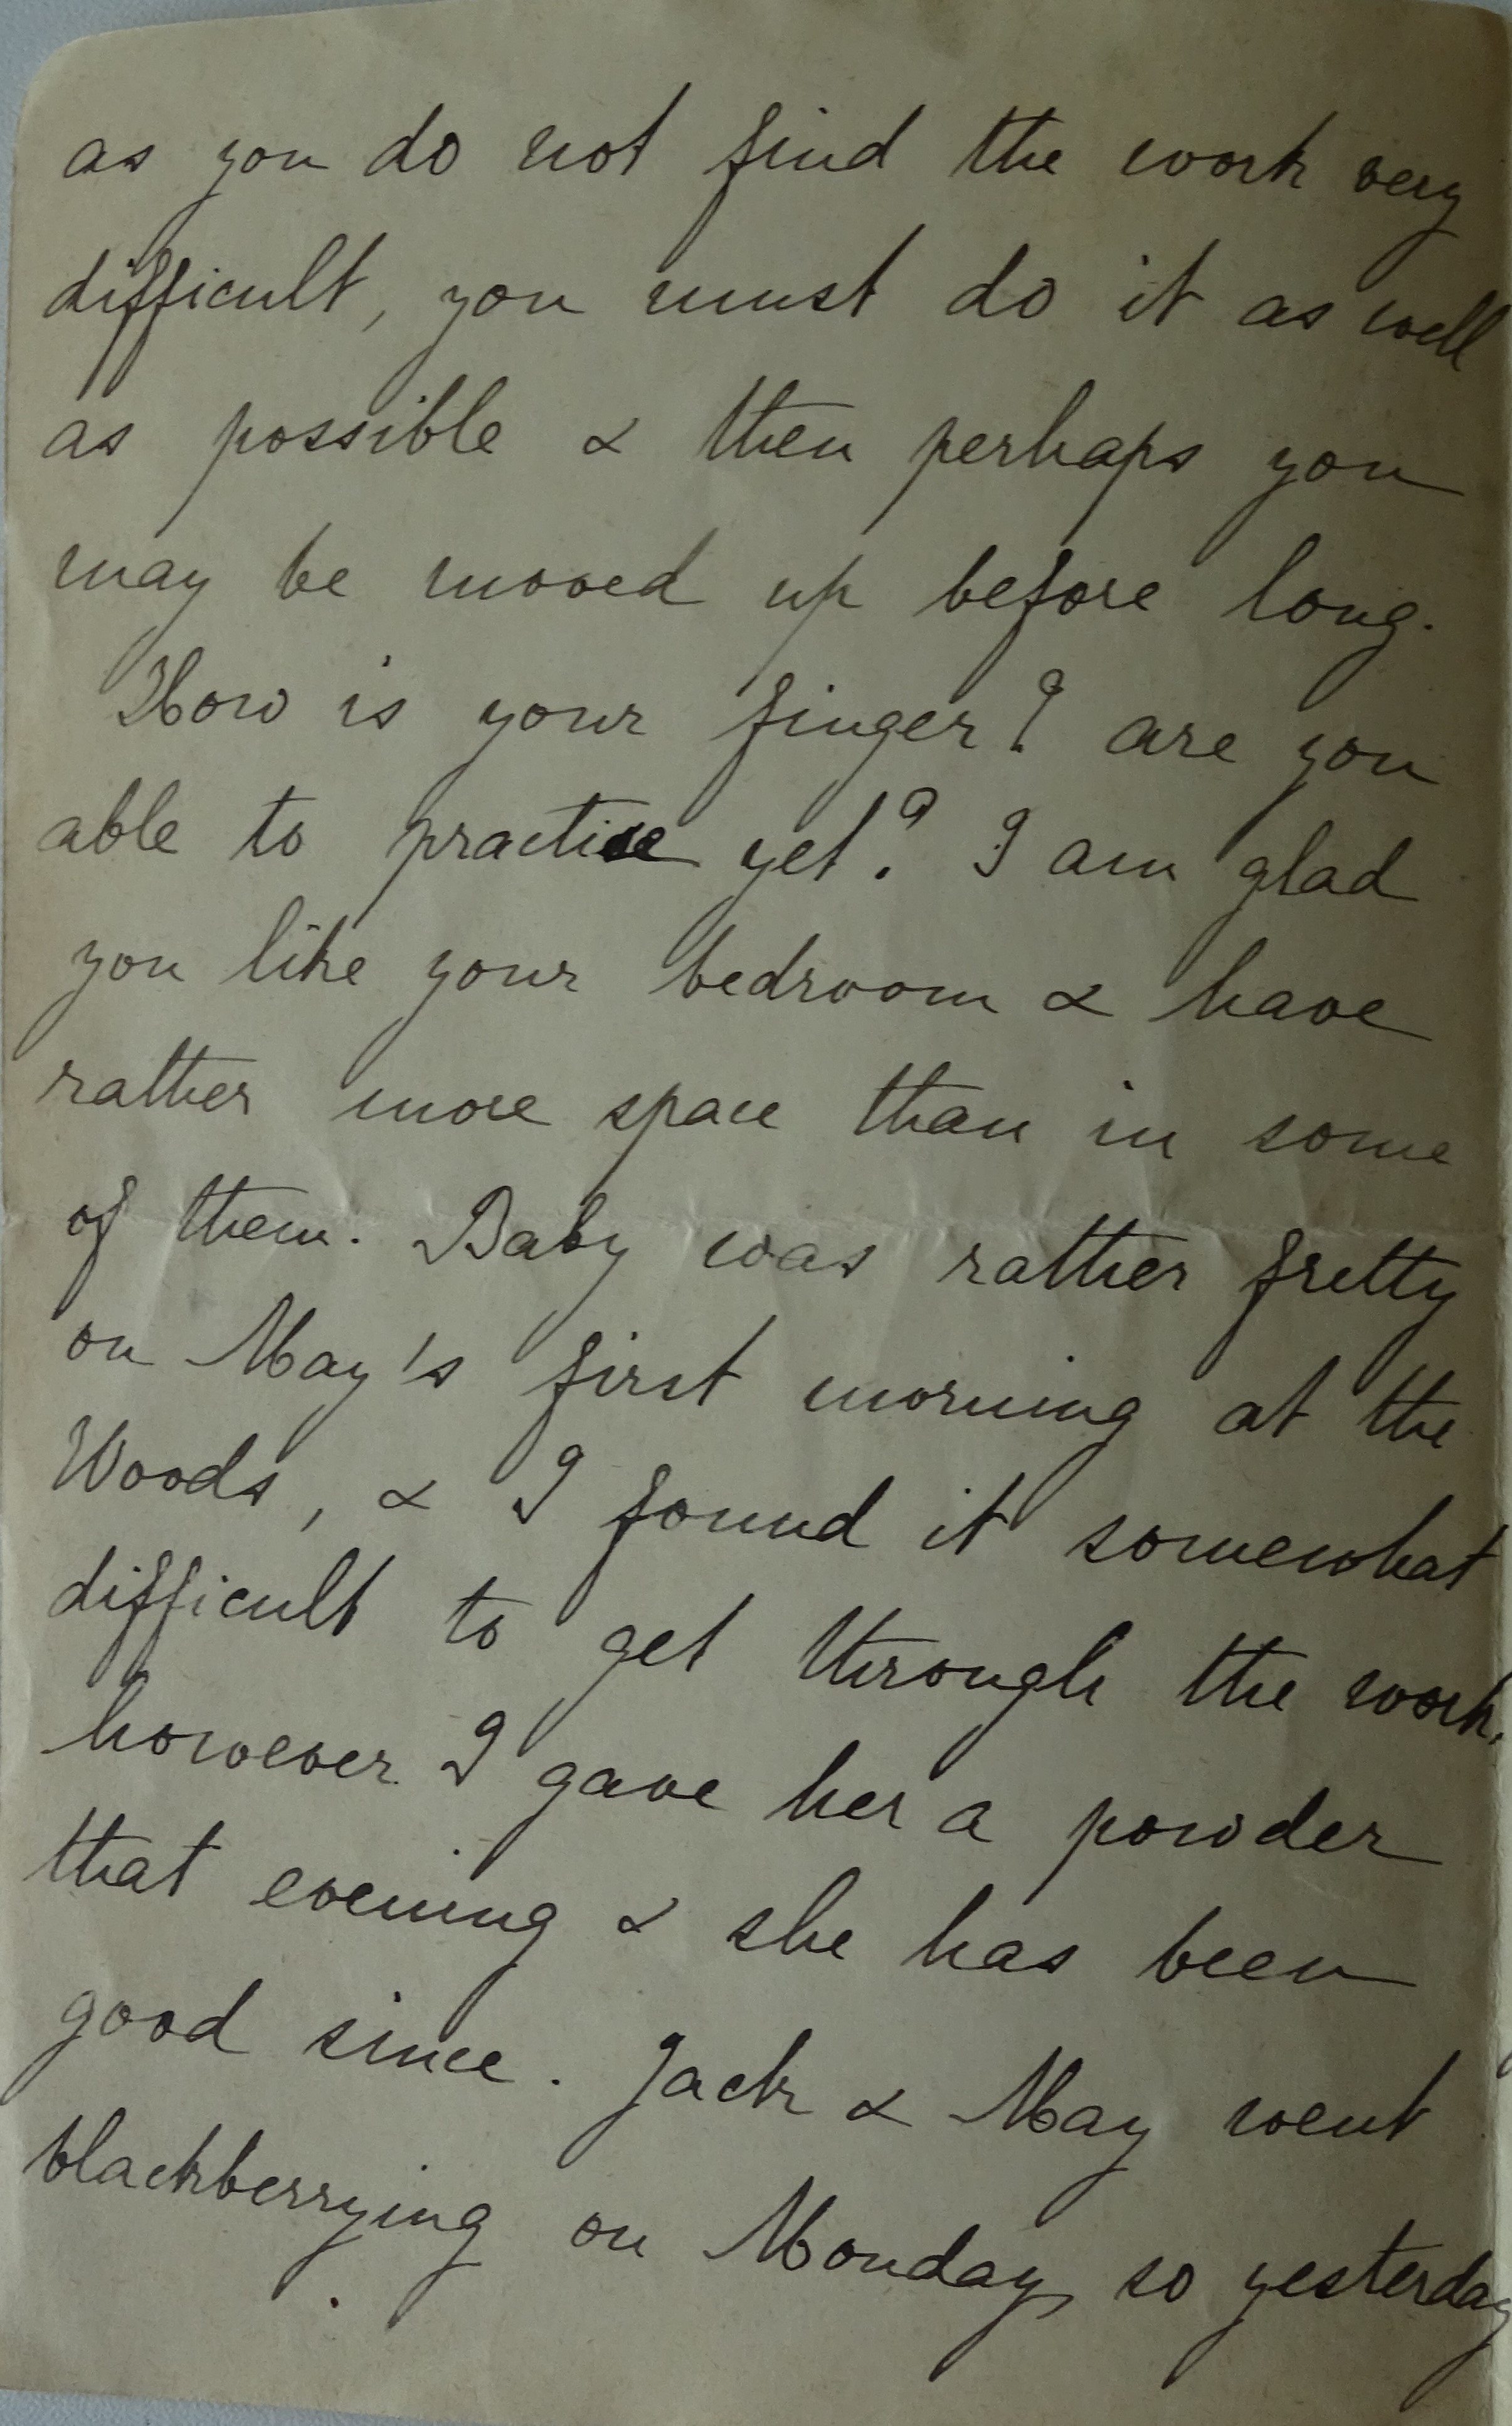 as you do not find the work very
difficult, you must do it as well
as possible & then perhaps you
may be moved up before long.
How is your finger? are you
able to practise yet? I am glad
you like your bedroom & have
rather more space than in some
of them. Baby was rather fretty
on May's first morning at the
Woods, & I found it somewhat
difficult to get through the work,
however I gave her a powder
that evening & she has been
good since. Jack & May went
blackberrying on Monday, so yesterday